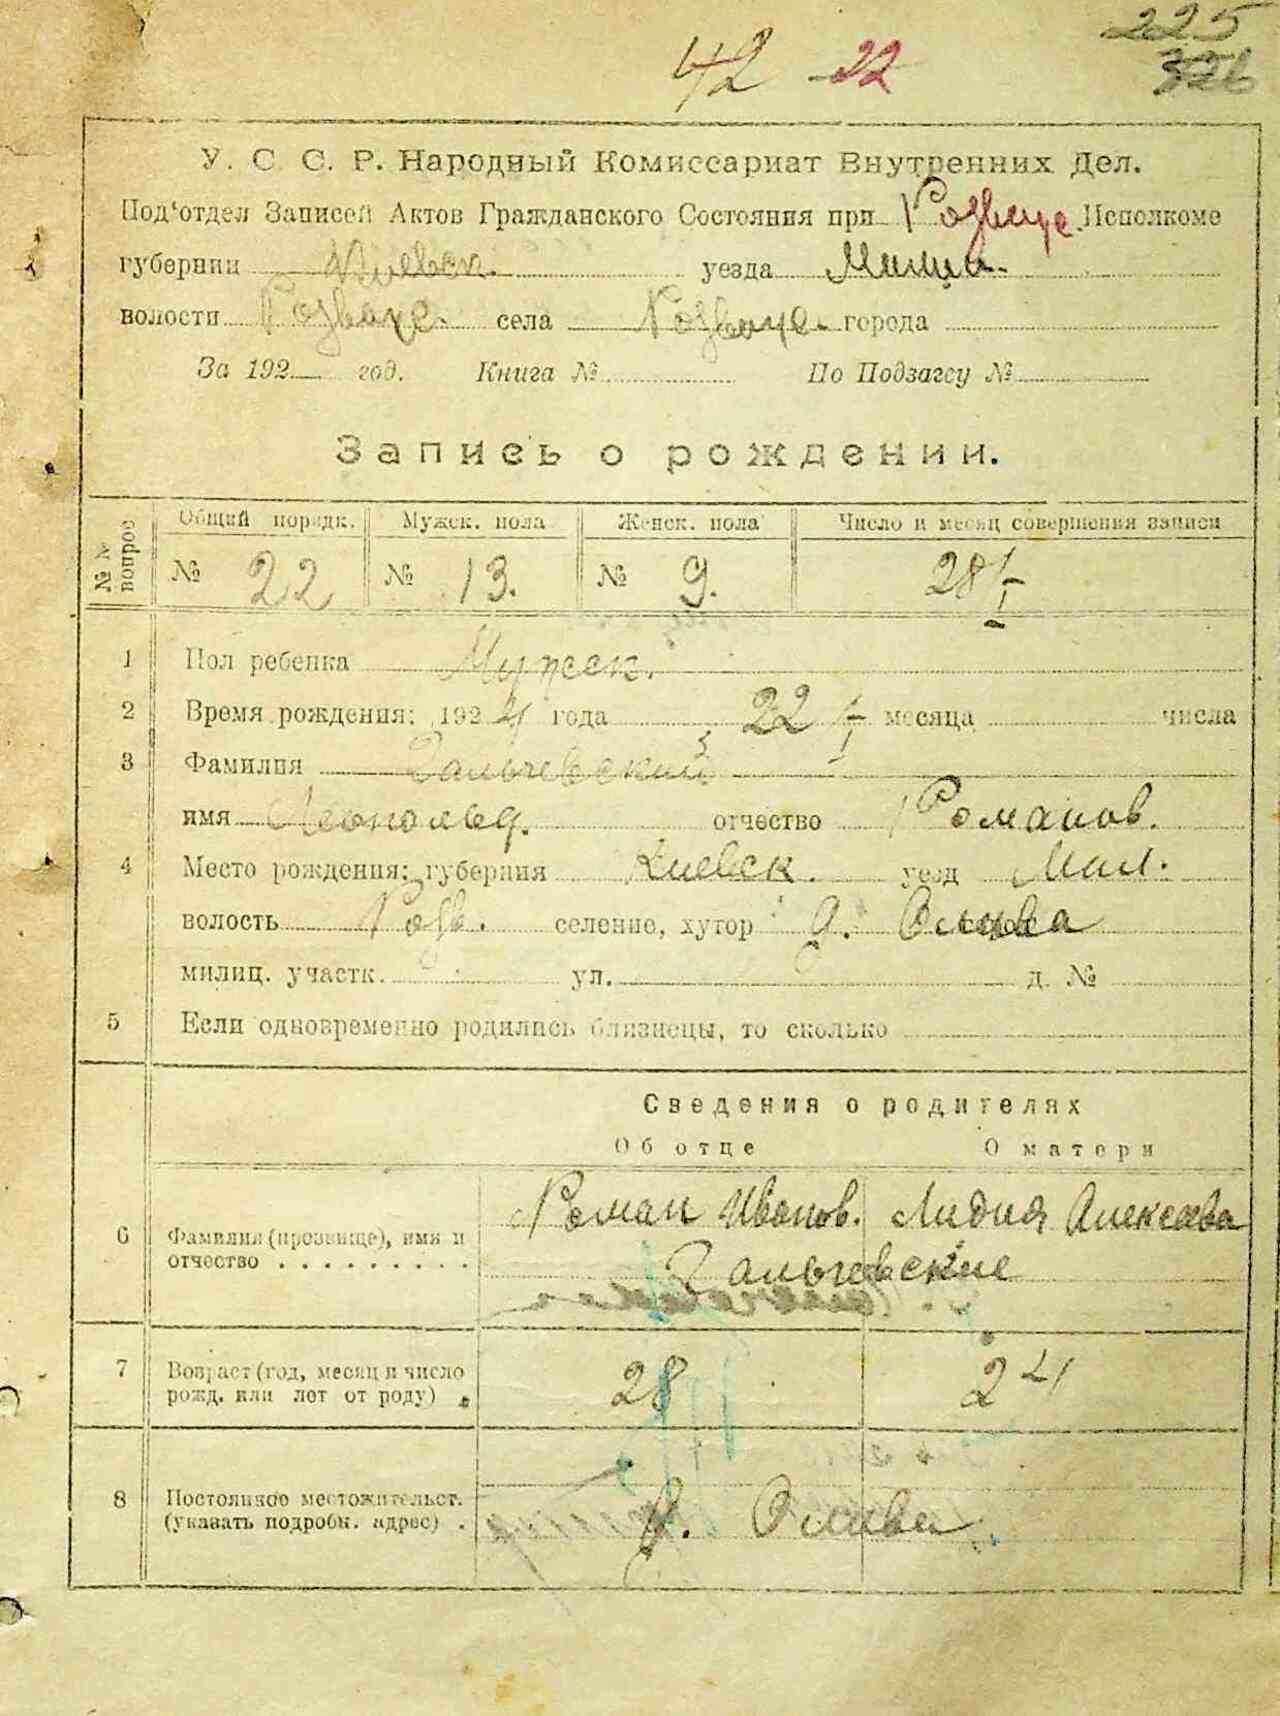 225
326
42 22
У. С. С. Р. Народный Комиссариат Внутренних Дел.
Под'отдел Записей Актов Гражданского Состояния при Розваж. Исполкоме
губернии Киевск. уезда
волости Розваж. села Розваж. города
За 192 год. Книга № По Подзагсу №
Запись о рождении.
№№ вопрос
Общий порядк. Мужск. пола Женск. пола Число и месяц совершения записи
№ 22 № 13. № 9. 28/I
1 Пол ребенка Мужск.
2 Время рождения: 1924 года 22/I месяца числа
3 Фамилия Зальчевский
имя Леонольд. отчество Романов.
4 Место рождения: губерния Киевск. уезд
волость Розв. селение, хутор д. Олива
милиц. участк. ул. д. №
5 Если одновременно родились близнецы, то сколько
Сведения о родителях
Об отце О матери
6 Фамилия (прозвище), имя и отчество Роман Иванов. Лидия Алексеева
Зальчевские
7 Возраст (год, месяц и число рожд. или лет от роду) 28 24
8 Постоянное местожительст. (указать подробн. адрес) д. Олива